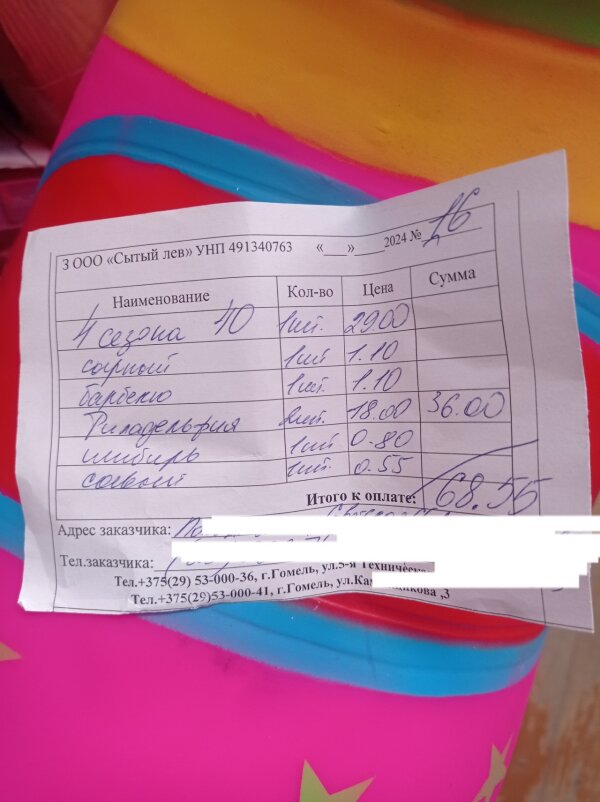 З ООО «Сытый лев» УНП 491340763 «___»_____2024 № 26
Наименование Кол-во Цена Сумма
4 сезона 40 1шт. 29.00
сырный 1шт 1.10
барбекю 1шт. 1.10
Филадельфия 2шт. 18.00 36.00
имбирь 1шт 0.80
соевый 1шт. 0.55
Итого к оплате: 68.55
Адрес заказчика:
Тел.заказчика:
Тел.+375(29) 53-000-36, г.Гомель, ул.5-я Техническа
Тел.+375(29)53-000-41, г.Гомель, ул.Ка ,3